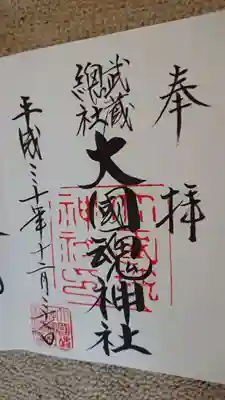 奉拝
武蔵
總社
大國魂神社
平成三十年十二月三十日